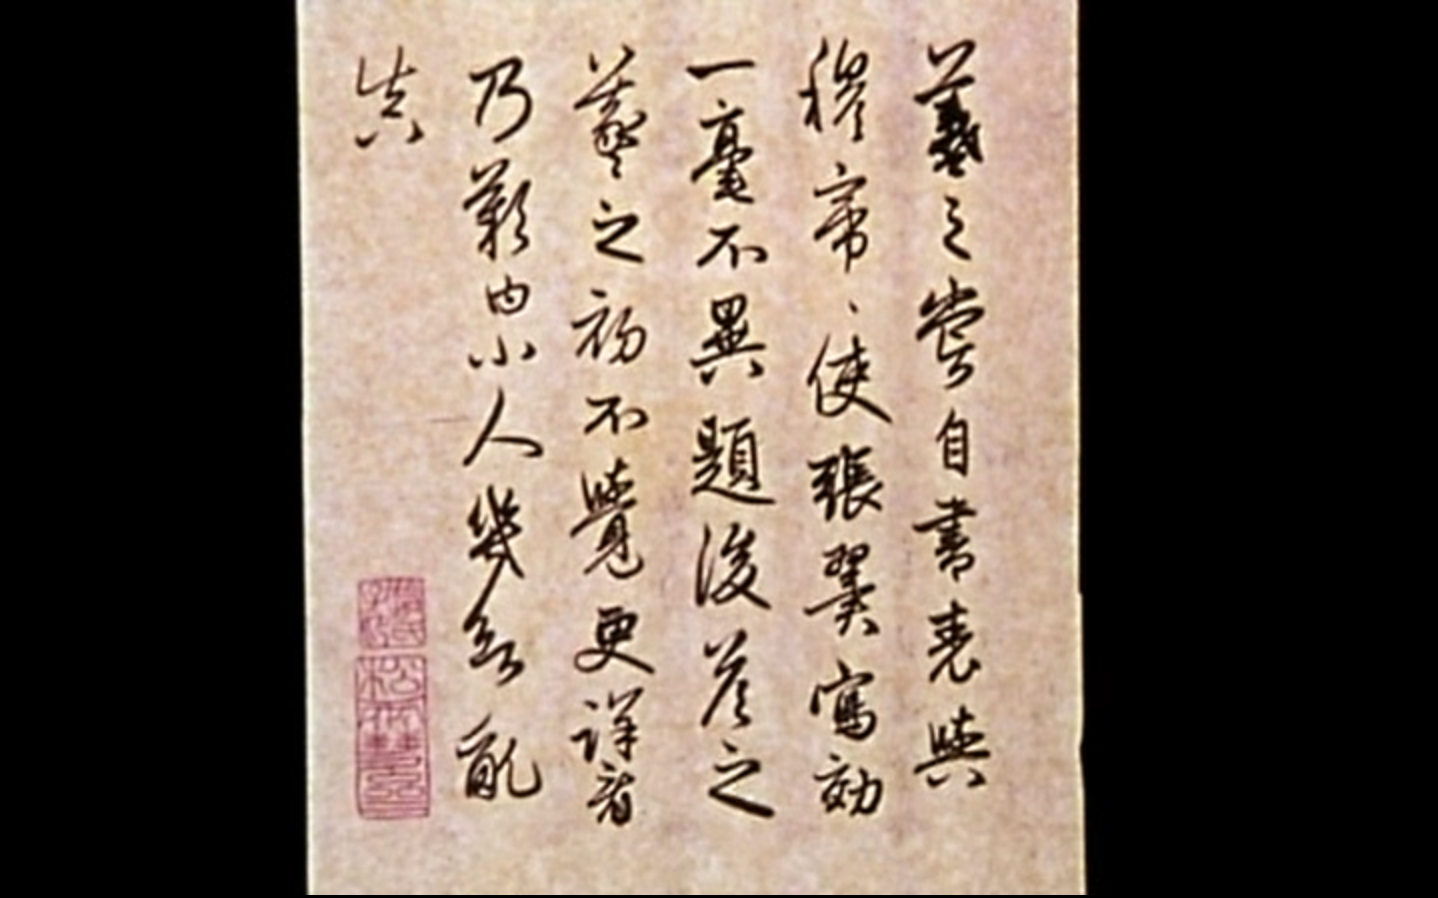 羲之嘗自書表與
穆帝、使張翼寫効
一毫不異題後答之
羲之初不覺更詳看
乃歎曰小人幾欲亂
真